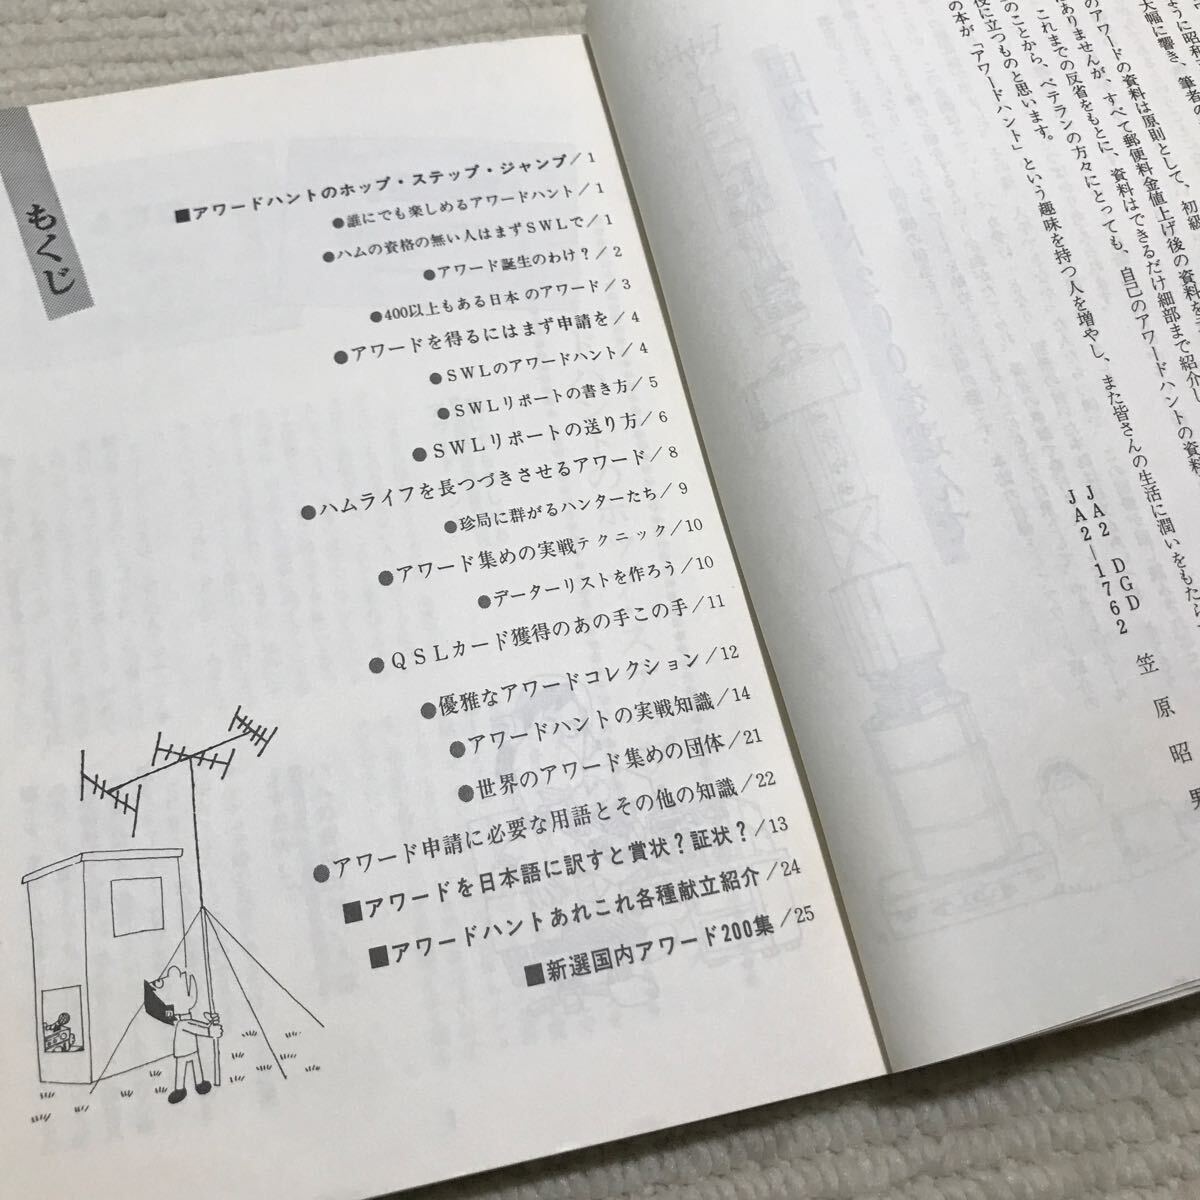 もくじ
■アワードハントのホップ・ステップ・ジャンプ/1
●誰にでも楽しめるアワードハント/1
●ハムの資格の無い人はまずSWLで/1
●アワード誕生のわけ?/2
●400以上もある日本のアワード/3
●アワードを得るにはまず申請を/4
●SWLのアワードハント/4
●SWLリポートの書き方/5
●SWLリポートの送り方/6
●ハムライフを長つづきさせるアワード/8
●珍局に群がるハンターたち/9
●アワード集めの実戦テクニック/10
●データーリストを作ろう/10
●QSLカード獲得のあの手この手/11
●優雅なアワードコレクション/12
●アワードハントの実戦知識/14
●世界のアワード集めの団体/21
●アワード申請に必要な用語とその他の知識/22
■アワードを日本語に訳すと賞状?証状?/13
■アワードハントあれこれ各種献立紹介/24
■新選国内アワード200集/25
ように昭和
大幅に響き、筆者の
のアワードの資料は原則として、初級
ありませんが、すべて郵便料金値上げ後の資料を
これまでの反省をもとに、資料はできるだけ細部まで紹介し
このことから、ベテランの方々にとっても、自己のアワードハントの資料
役に立つものと思います。
の本が「アワードハント」という趣味を持つ人を増やし、また皆さんの生活に潤いをもたら
JA2 DGD
JA2-1762
笠原昭男